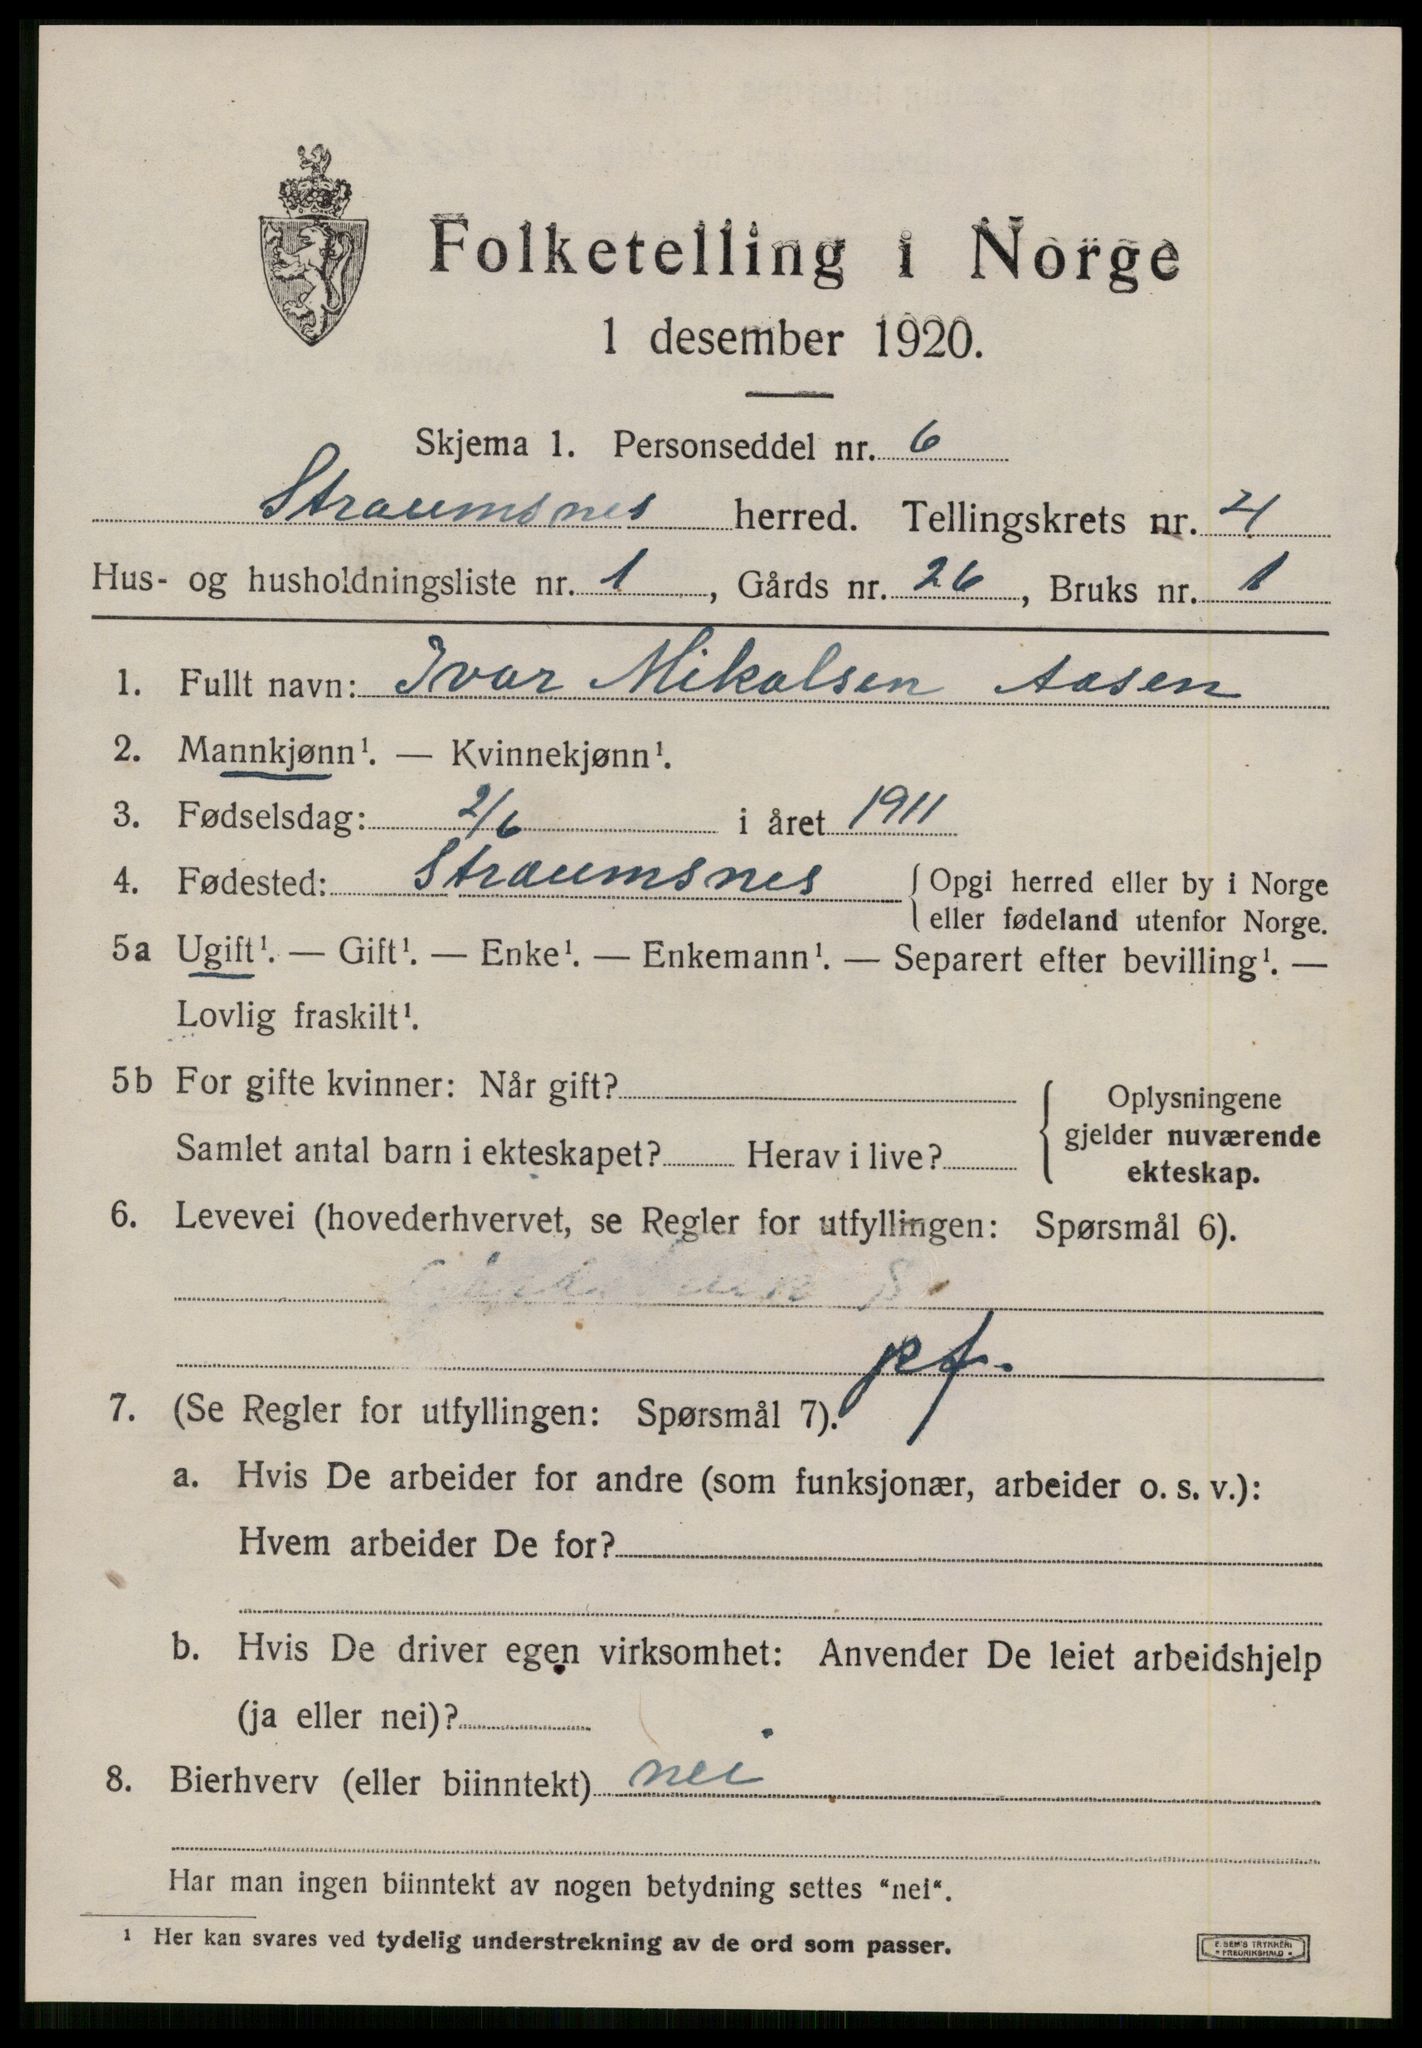 Folketelling i Norge
1 desember 1920.
Skjema 1. Personseddel nr. 6
Straumsnes herred. Tellingskrets nr. 4
Hus- og husholdningsliste nr. 1, Gårds nr. 26, Bruks nr. 1
1. Fullt navn: Ivar Mikalsen Aasen
2. Mannkjønn¹. — Kvinnekjønn¹.
3. Fødselsdag: 2/6 i året 1911
4. Fødested: Straumsnes { Opgi herred eller by i Norge
eller fødeland utenfor Norge.
5a Ugift¹. — Gift¹. — Enke¹. — Enkemann¹. — Separert efter bevilling¹. —
Lovlig fraskilt¹.
5b For gifte kvinner: Når gift?
Samlet antal barn i ekteskapet? Herav i live?
{ Oplysningene
gjelder nuværende
ekteskap.
6. Levevei (hovederhvervet, se Regler for utfyllingen: Spørsmål 6).
pf.
7. (Se Regler for utfyllingen: Spørsmål 7).
a. Hvis De arbeider for andre (som funksjonær, arbeider o. s. v.):
Hvem arbeider De for?
b. Hvis De driver egen virksomhet: Anvender De leiet arbeidshjelp
(ja eller nei)?
8. Bierhverv (eller biinntekt) nei
Har man ingen biinntekt av nogen betydning settes "nei".
¹ Her kan svares ved tydelig understrekning av de ord som passer.
E. SEM'S TRYKKERI
• FREDRIKSHALD •